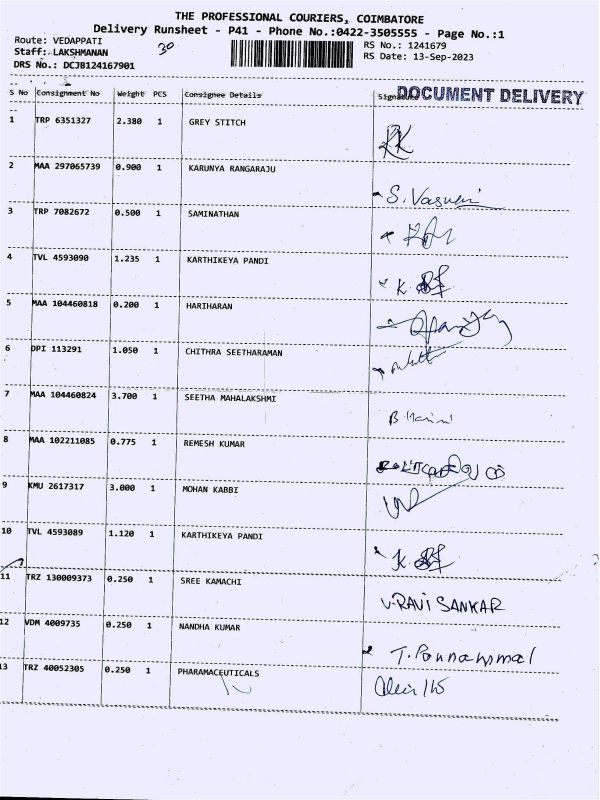 THE PROFESSIONAL COURIERS, COIMBATORE
Delivery Runsheet - P41 - Phone No.:0422-3505555 - Page No.:1
Route: VEDAPPATI 30 RS No.: 1241679
Staff: LAKSHMANAN RS Date: 13-Sep-2023
DRS No.: DCJB124167901
S No Consignment No Weight PCS Consignee Details Signature DOCUMENT DELIVERY
1 TRP 6351327 2.380 1 GREY STITCH
2 MAA 297065739 0.900 1 KARUNYA RANGARAJU S. Vasuki
3 TRP 7082672 0.500 1 SAMINATHAN
4 TVL 4593090 1.235 1 KARTHIKEYA PANDI
5 MAA 104460818 0.200 1 HARIHARAN
6 DPI 113291 1.050 1 CHITHRA SEETHARAMAN
7 MAA 104460824 3.700 1 SEETHA MAHALAKSHMI
8 MAA 102211085 0.775 1 REMESH KUMAR
9 KMU 2617317 3.000 1 MOHAN KABBI
10 TVL 4593089 1.120 1 KARTHIKEYA PANDI
11 TRZ 130009373 0.250 1 SREE KAMACHI V-RAVI SANKAR
12 VDM 4009735 0.250 1 NANDHA KUMAR T. Ponnammal
13 TRZ 40052305 0.250 1 PHARAMACEUTICALS